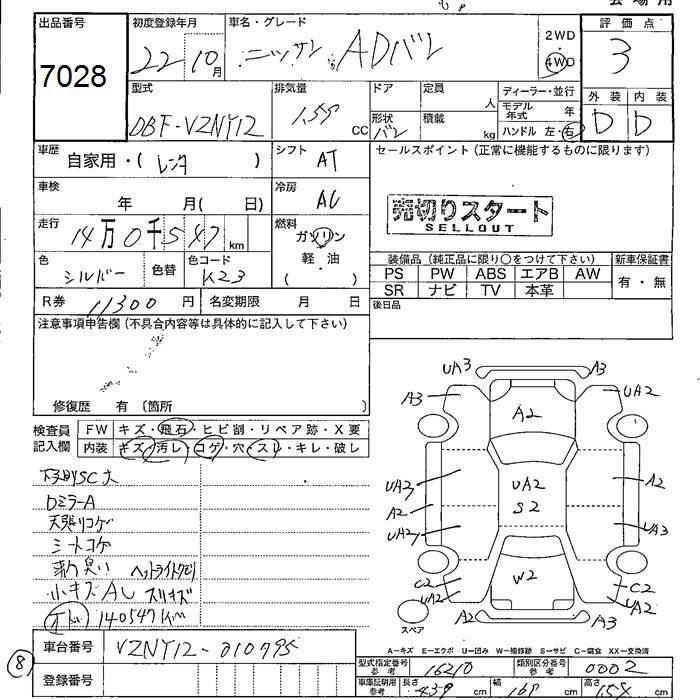 出品番号
7028
初度登録年月
22 10月
車名・グレード
ニッサン ADバン
2WD
・
4WD
評価点
3
外装 内装
D D
型式
DBF-VZNY12
排気量
1.5 CC
ドア
形状
バン
定員
人
積載
kg
ディーラー・並行
モデル年式 年
ハンドル 左・右
車歴
自家用・( レンタ )
シフト
AT
セールスポイント（正常に機能するものに限ります）
車検
年 月( 日)
冷房
AC
売切りスタート
SELLOUT
走行
14万0千547km
燃料
ガソリン
軽・油
( )
色
シルバー
色替
色コード
K23
装備品（純正品に限り○をつけて下さい）
新車保証書
PS PW ABS エアB AW
SR ナビ TV 本革
有・無
R券 11300円
名変期限 月 日
後日品
注意事項申告欄（不具合内容等は具体的に記入して下さい）
修復歴 有 〔箇所 〕
検査員
記入欄
FW キズ・飛石・ヒビ割・リペア跡・X要
内装 キズ・汚レ・コゲ・穴・スレ・キレ・破レ
下廻りSC大
DミラーA
天張りコゲ
シートコゲ
臭い ヘッドライトクモリ
小キズAU スリキズ
140547km
UA3 A3
A3 UA2
A2
UA3 UA2 A2
A2 S2
UA2 UA3
C2 W2 C2
UA2 UA2
A2 A3
スペア
A-キズ E-エクボ U-凹み W-補修跡 S-サビ C-腐食 XX-交換済
車台番号
VZNY12-010795
登録番号
8
型式指定番号
参考
16210
類別区分番号
参考
0002
車庫証明用
参考
長さ 439 cm
幅 169 cm
高さ 158 cm